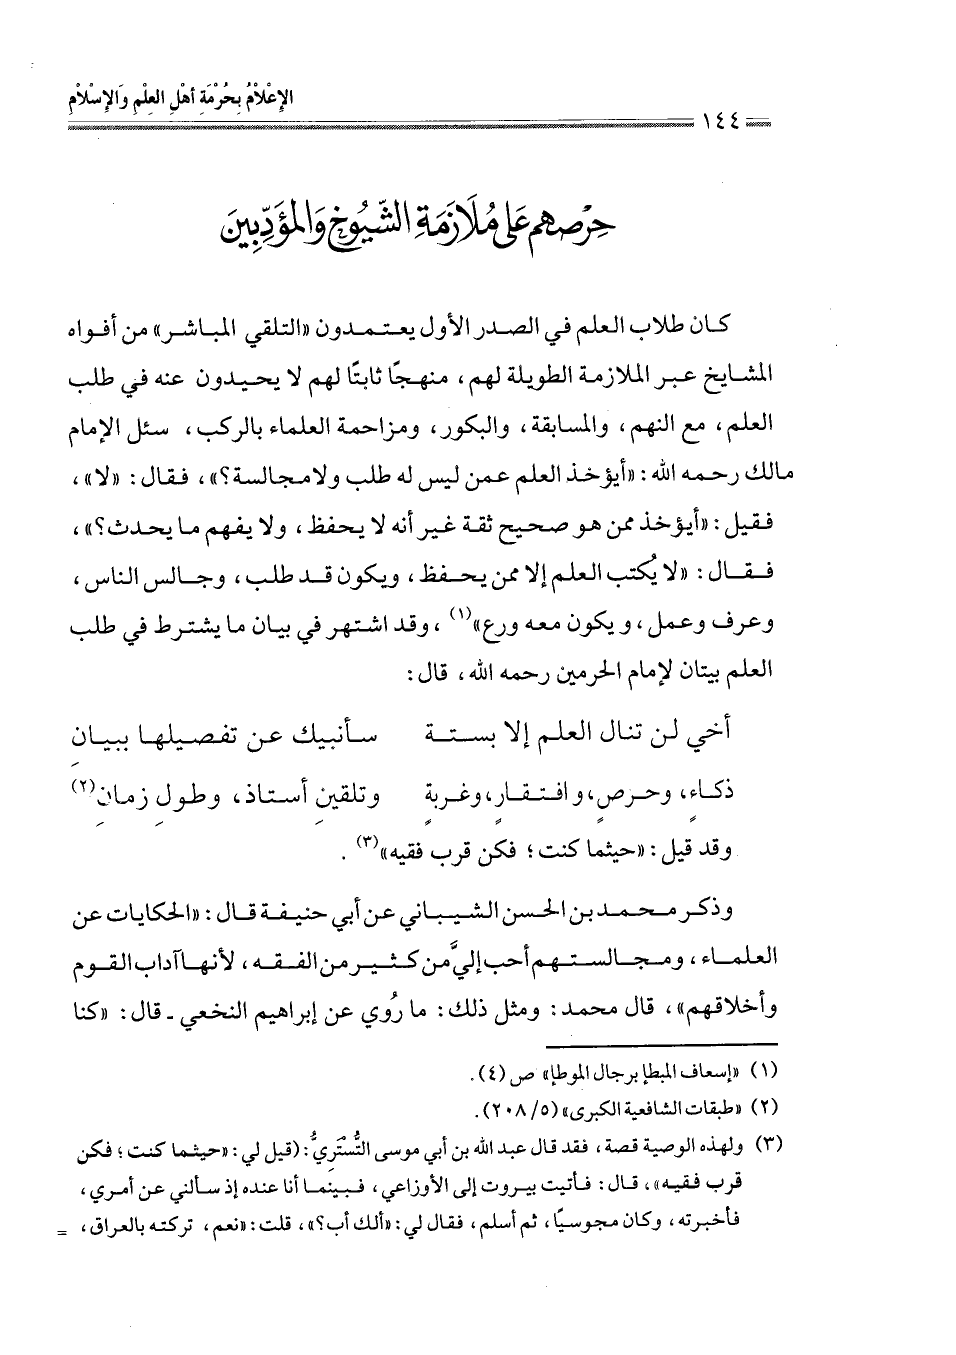 الإِعْلَامُ بِحُرْمَةِ أَهْلِ العِلْمِ وَالإِسْلَامِ
١٤٤
حِرْصهم عَلَى مُلَازَمَةِ الشُّيُوخِ وَالمُؤَدِّبِينَ
كان طلاب العلم في الصدر الأول يعتمدون «التلقي المباشر» من أفواه
المشايخ عبر الملازمة الطويلة لهم، منهجًا ثابتًا لهم لا يحيدون عنه في طلب
العلم، مع النهم، والمسابقة، والبكور، ومزاحمة العلماء بالركب، سئل الإمام
مالك رحمه الله: «أيؤخذ العلم عمن ليس له طلب ولا مجالسة؟»، فقال: «لا»،
فقيل: «أيؤخذ ممن هو صحيح ثقة غير أنه لا يحفظ، ولا يفهم ما يحدث؟»،
فقال: «لا يُكتب العلم إلا ممن يحفظ، ويكون قد طلب، وجالس الناس،
وعرف وعمل، ويكون معه ورع»(١)، وقد اشتهر في بيان ما يشترط في طلب
العلم بيتان لإمام الحرمين رحمه الله، قال:
أخي لن تنال العلم إلا بستة سأنبيك عن تفصيلها ببيانِ
ذكاءٍ، وحرصٍ، وافتقارٍ، وغربةٍ وتلقينِ أستاذ، وطولِ زمانِ(٢)
وقد قيل: «حيثما كنت؛ فكن قرب فقيه»(٣).
وذكر محمد بن الحسن الشيباني عن أبي حنيفة قال: «الحكايات عن
العلماء، ومجالستهم أحب إليَّ من كثير من الفقه، لأنها آداب القوم
وأخلاقهم»، قال محمد: ومثل ذلك: ما رُوي عن إبراهيم النخعي - قال: «كنا
(١) «إسعاف المبطإ برجال الموطإ» ص (٤).
(٢) «طبقات الشافعية الكبرى» (٢٠٨/٥).
(٣) ولهذه الوصية قصة، فقد قال عبد الله بن أبي موسى التُّسْتَرِيُّ: (قيل لي: «حيثما كنت؛ فكن
قرب فقيه»، قال: فأتيت بيروت إلى الأوزاعي، فبينما أنا عنده إذ سألني عن أمري،
فأخبرته، وكان مجوسيًا، ثم أسلم، فقال لي: «ألك أب؟»، قلت: «نعم، تركته بالعراق، =